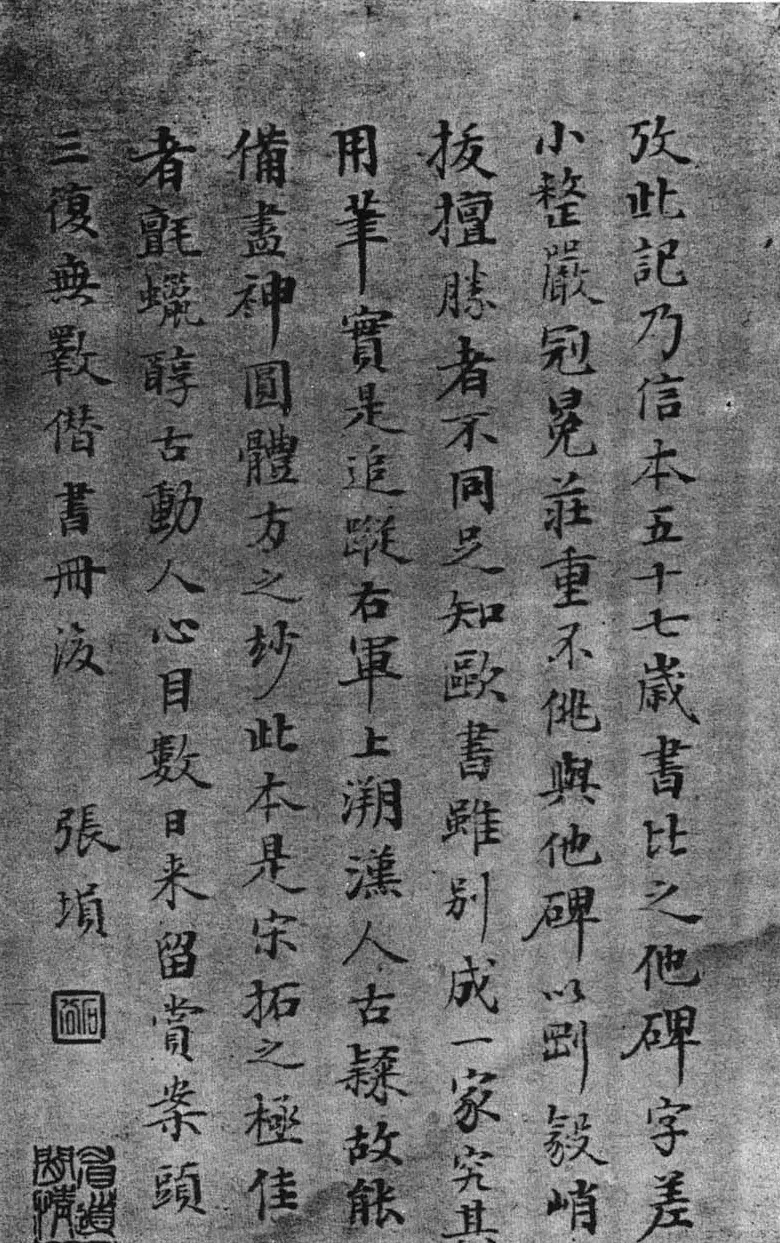 攷此記乃信本五十七歲書比之他碑字差
小整嚴冠冕莊重不佻與他碑以剛毅峭
拔擅勝者不同足知歐書雖別成一家究其
用筆實是追蹤右軍上溯漢人古隸故能
備盡神圓體方之妙此本是宋拓之極佳
者氈蠟醇古動人心目數日来留賞案頭
三復無斁偕書冊後
張塤